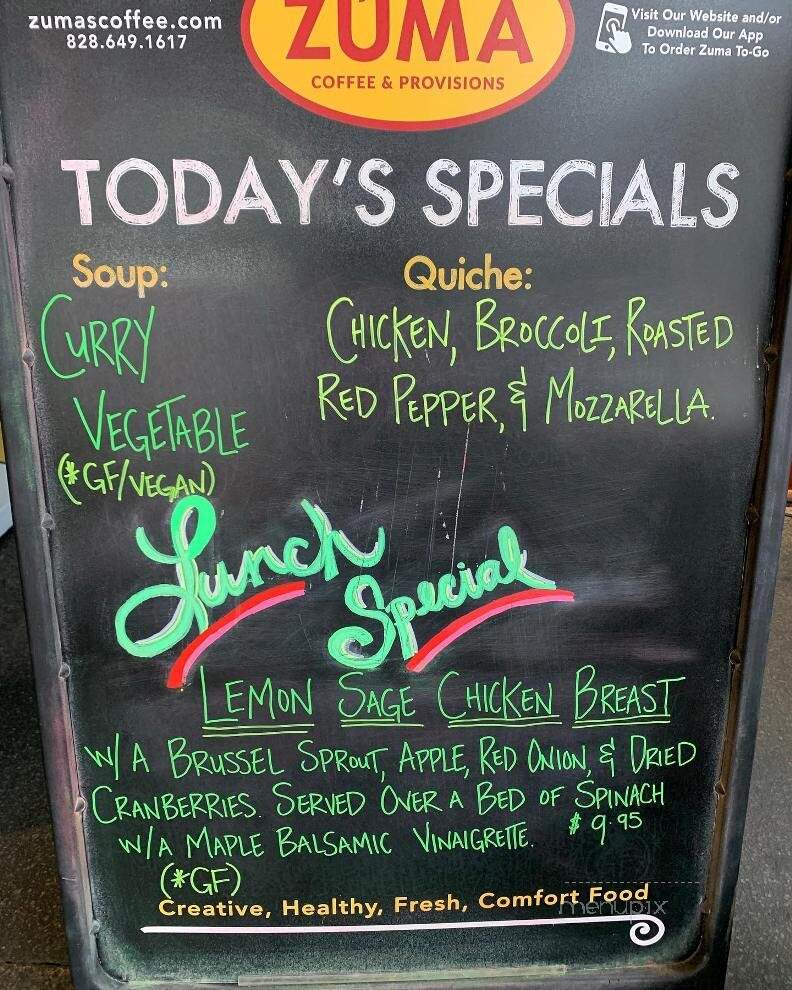 zumascoffee.com
828.649.1617
ZUMA
COFFEE & PROVISIONS
Visit Our Website and/or
Download Our App
To Order Zuma To-Go
TODAY'S SPECIALS
Soup:
CURRY
VEGETABLE
(*GF/VEGAN)
Quiche:
CHICKEN, BROCCOLI, ROASTED
RED PEPPER, & MOZZARELLA.
Lunch
Special
LEMON SAGE CHICKEN BREAST
W/ A BRUSSEL SPROUT, APPLE, RED ONION, & DRIED
CRANBERRIES. SERVED OVER A BED OF SPINACH
W/A MAPLE BALSAMIC VINAIGRETTE. $9.95
(*GF)
Creative, Healthy, Fresh, Comfort Food
menupix